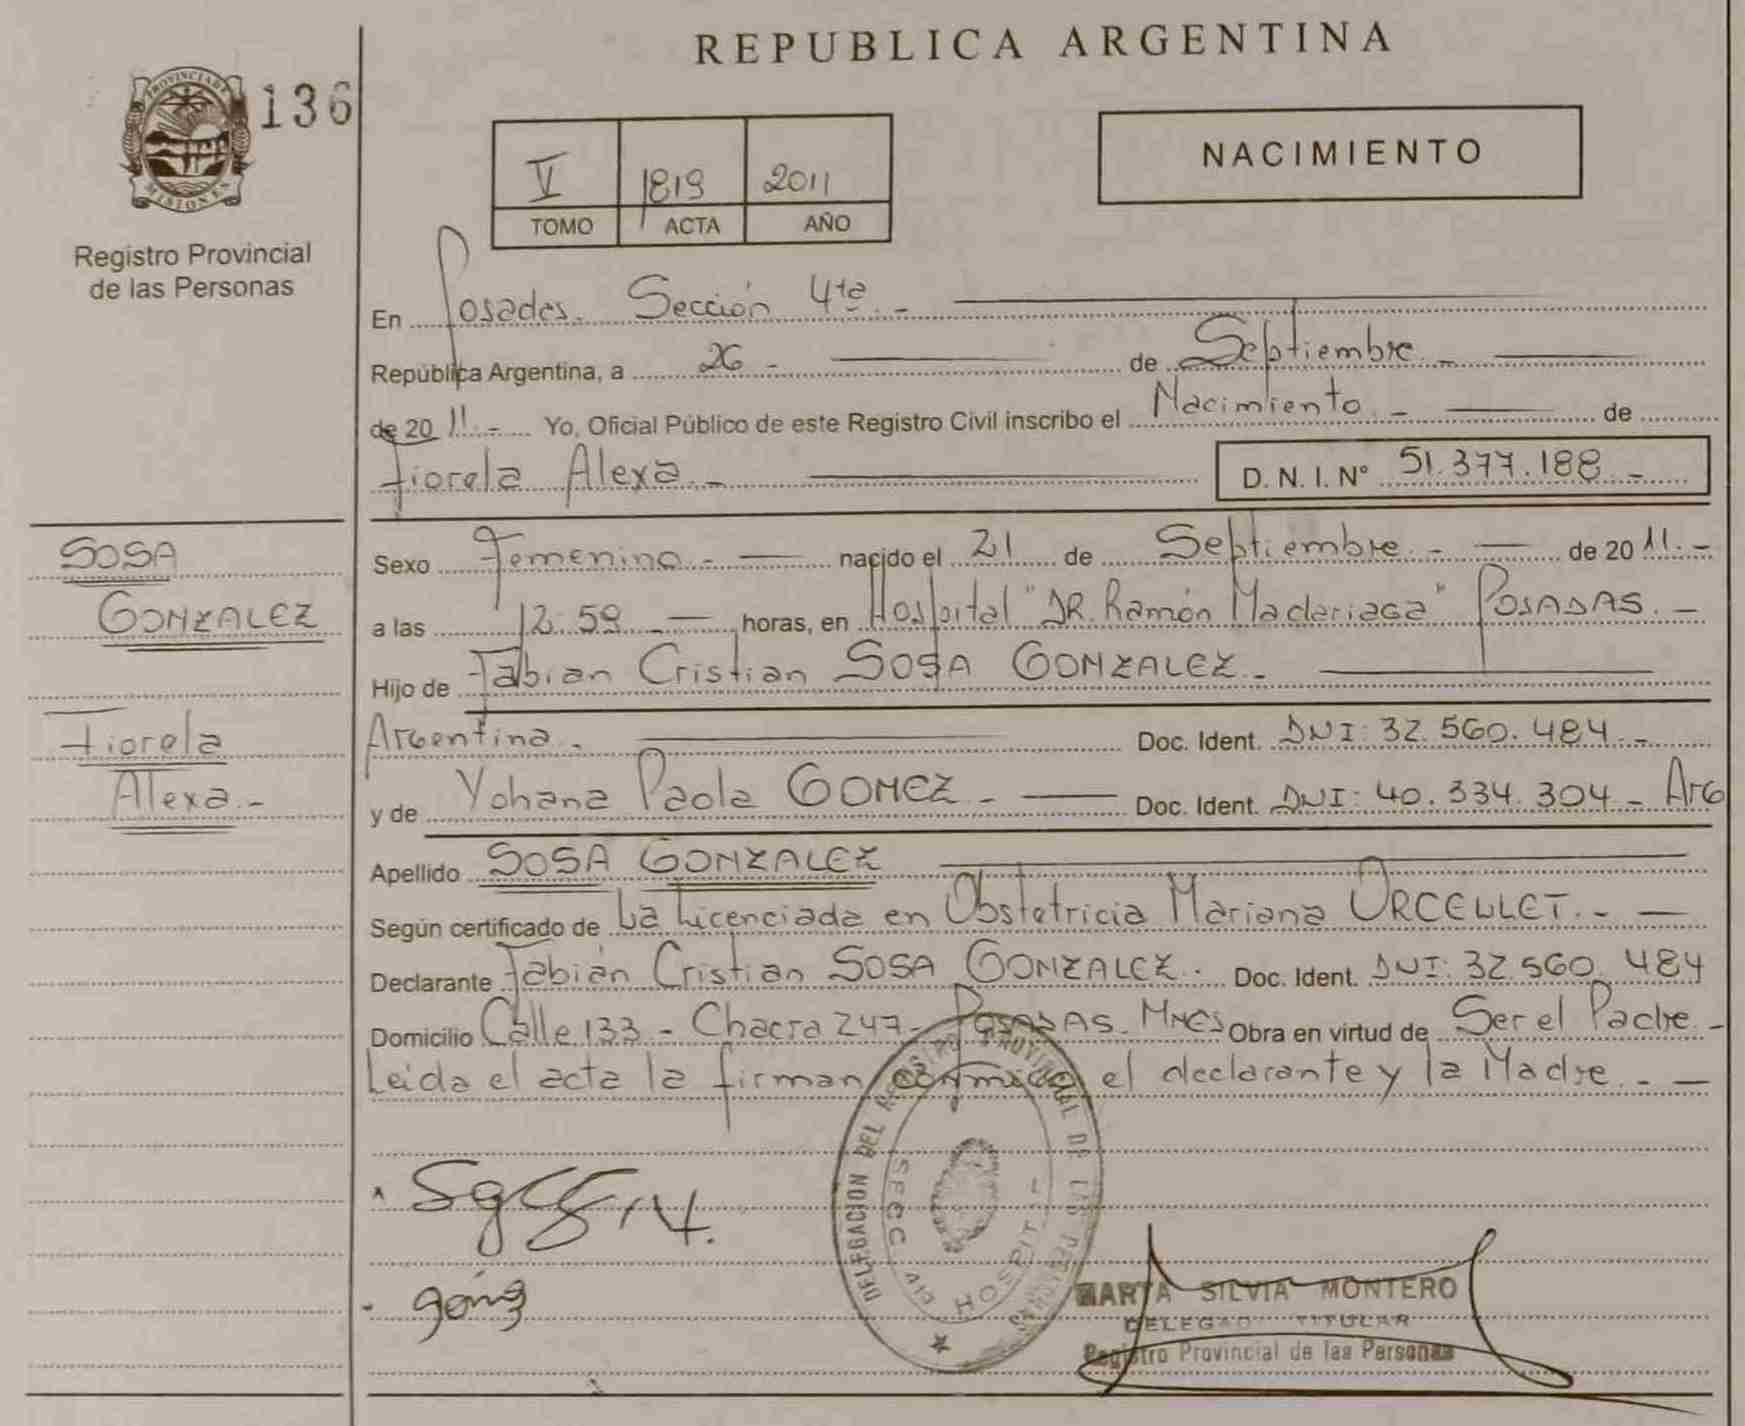 REPUBLICA ARGENTINA
PROVINCIA DE
MISIONES
136
Registro Provincial
de las Personas
V 1819 2011
TOMO ACTA AÑO
NACIMIENTO
En Posadas. Sección 4ta. -
República Argentina, a 26 - de Septiembre. -
de 20 11. - Yo, Oficial Público de este Registro Civil inscribo el Nacimiento. - de
Fiorela Alexa. - D. N. I. N° 51.377.188. -
SOSA
GONZALEZ
Fiorela
Alexa. -
Sexo Femenino. - nacido el 21 de Septiembre. - de 20 11. -
a las 12:59 - horas, en Hospital "DR. Ramón Madariaga" POSADAS. -
Hijo de Fabian Cristian SOSA GONZALEZ. -
Argentina. - Doc. Ident. DNI: 32.560.484. -
y de Yohana Paola GOMEZ. - Doc. Ident. DNI: 40.334.304 - Arg
Apellido SOSA GONZALEZ
Según certificado de La Licenciada en Obstetricia Mariana URCELLET. -
Declarante Fabián Cristian SOSA GONZALEZ. Doc. Ident. DNI: 32.560.484
Domicilio Calle 133 - Chacra 247 - POSADAS. Mnes Obra en virtud de Ser el Padre. -
Leida el acta la firman conmigo el declarante y la Madre. -
DELEGACION DEL REGISTRO PROVINCIAL DE LAS PERSONAS
SECC. 4ta
HOSPIT
MARTA SILVIA MONTERO
DELEGADO TITULAR
Registro Provincial de las Personas